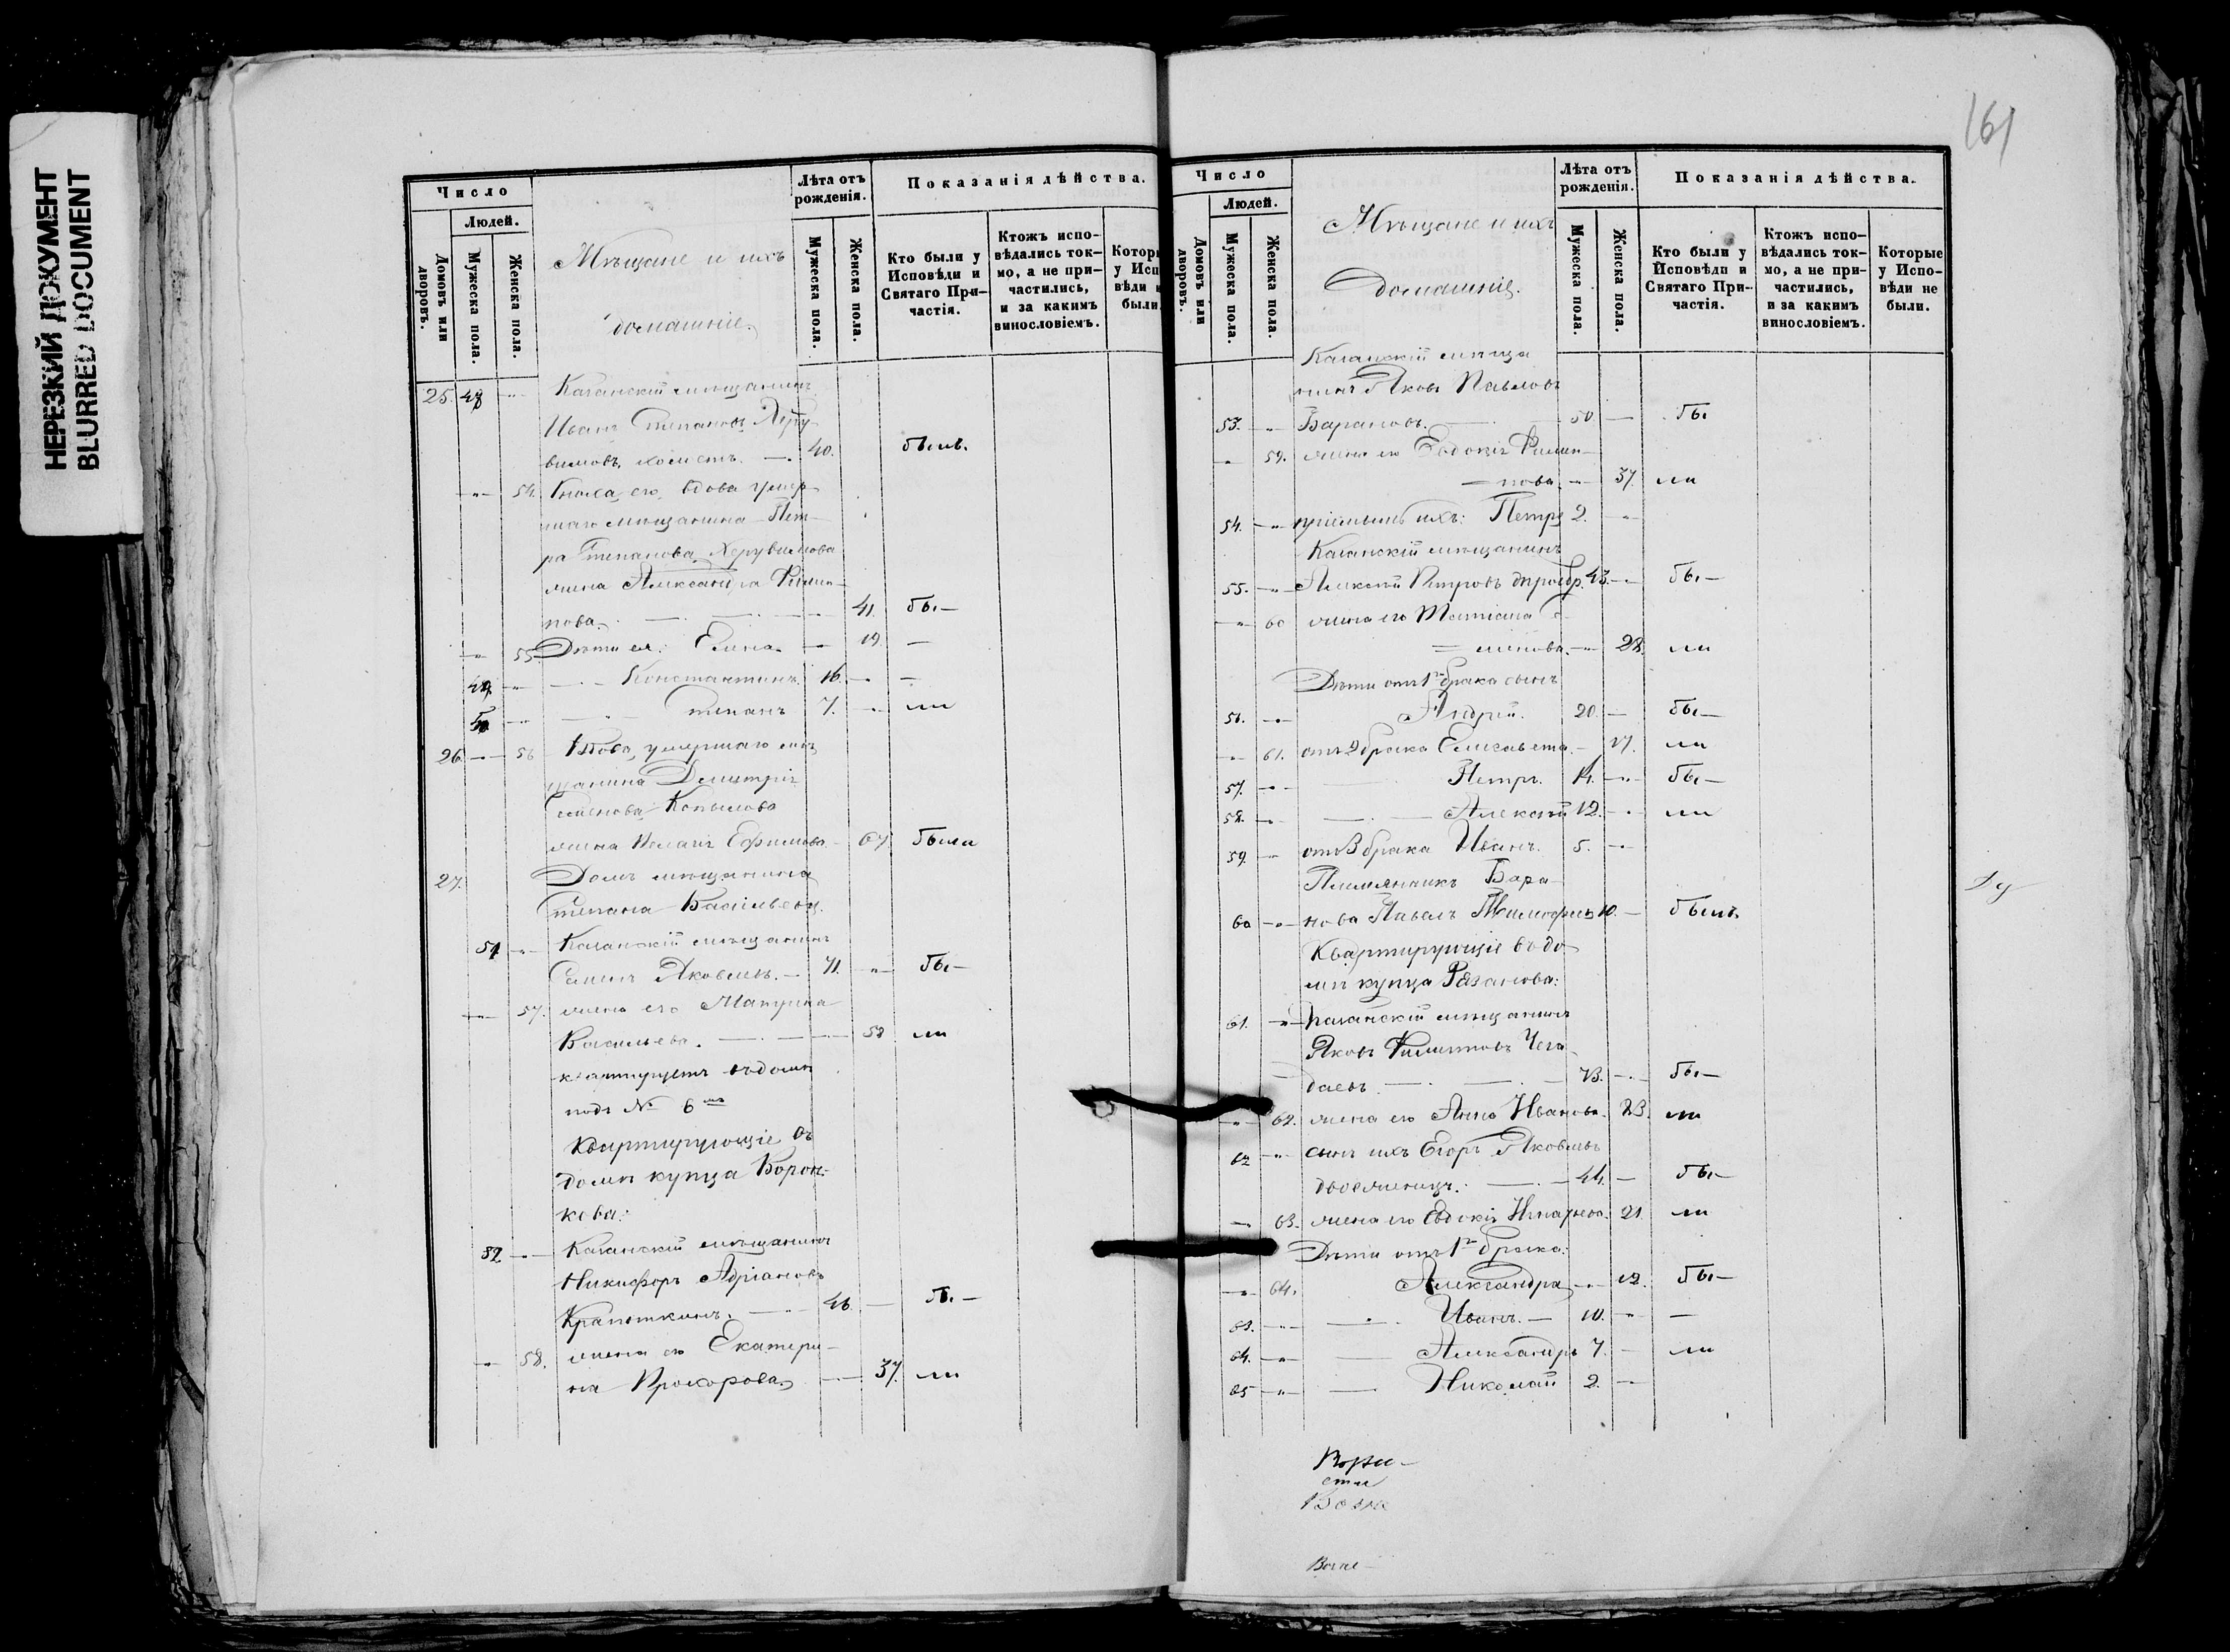 НЕРЕЗКИЙ ДОКУМЕНТ
BLURRED DOCUMENT
Число
Людей.
Домовъ или дворовъ.
Мужеска пола.
Женска пола.
Мѣщане и ихъ
домашніе.
Лѣта отъ рожденія.
Мужеска пола.
Женска пола.
Показанія дѣйства.
Кто были у Исповѣди и Святаго При-частія.
Ктожъ испо-вѣдались ток-мо, а не при-частились, и за какимъ винословіемъ.
Котор
у Исп
вѣди
были.
25. 48 Казанскій мѣщанинъ
Иванъ Степановъ Херу-
вимовъ, холостъ. — 40. былъ.
54. вдова умер-
шаго мѣщанина Пет-
ра Степанова Херувимова
жена Александра Филип-
пова. 41. бы—
55 Дѣти ея: Елена. — 19. —
49. Константинъ. 16. — —
50 Степанъ 7. — ли
26 56 Вдова умершаго мѣ-
щанина Димитрія
Семенова Копылова
жена Ефимова 67 была
27. Домъ мѣщанина
Степана Васильева.
51 Казанскій мѣщанинъ
Семенъ Яковлевъ. — 71. бы—
57. жена его Матрена
Васильева. 52 ли
квартируетъ въ домѣ
подъ № 6мъ
Квартирующіе въ
домѣ купца Ворон-
кова:
52 Казанскій мѣщанинъ
Никифоръ Адріановъ
Крапоткинъ. 46 — бы—
58. жена его Екатери-
на Прохорова. 37. ли
161
Число
Людей.
Домовъ или дворовъ.
Мужеска пола.
Женска пола.
Мѣщане и ихъ
домашніе.
Лѣта отъ рожденія.
Мужеска пола.
Женска пола.
Показанія дѣйства.
Кто были у Исповѣди и Святаго При-частія.
Ктожъ испо-вѣдались ток-мо, а не при-частились, и за какимъ винословіемъ.
Которые у Испо-вѣди не были.
Казанскій мѣща
нинъ Яковъ Павловъ
53. Барановъ. 50 — бы
59. жена его Евдокія Филип-
пова. — 37. ли
54. пріемышъ ихъ: Петръ 2.
Казанскій мѣщанинъ
55. Алексѣй Петровъ 43. бы—
60 жена его Татіана Се-
менова. 28. ли
Дѣти отъ 1го брака сынъ
56. Андрей. 20. — бы—
61. отъ 2 брака Елисавета. — 17. ли
57. Петръ. 14. бы—
58. Алексѣй 12. ли
59. отъ 3 брака Иванъ. 5.
Племянникъ Бара-
60 нова Павелъ 10. — былъ
Квартирующіе въ до
мѣ купца Рязанова:
61. Казанскій мѣщанинъ
Яковъ Филипповъ Чега-
даевъ. 73. бы—
62. жена его Анна Иванова. 73. ли
62 сынъ ихъ Егоръ Яковлевъ
двоеженецъ. 44. — бы—
63. жена его Евдокія 21. ли
Дѣти отъ 1го брака:
64. Александра 12. бы—
63. Иванъ. — 10. —
64. Александръ 7. — ли
65 Николай 2. —